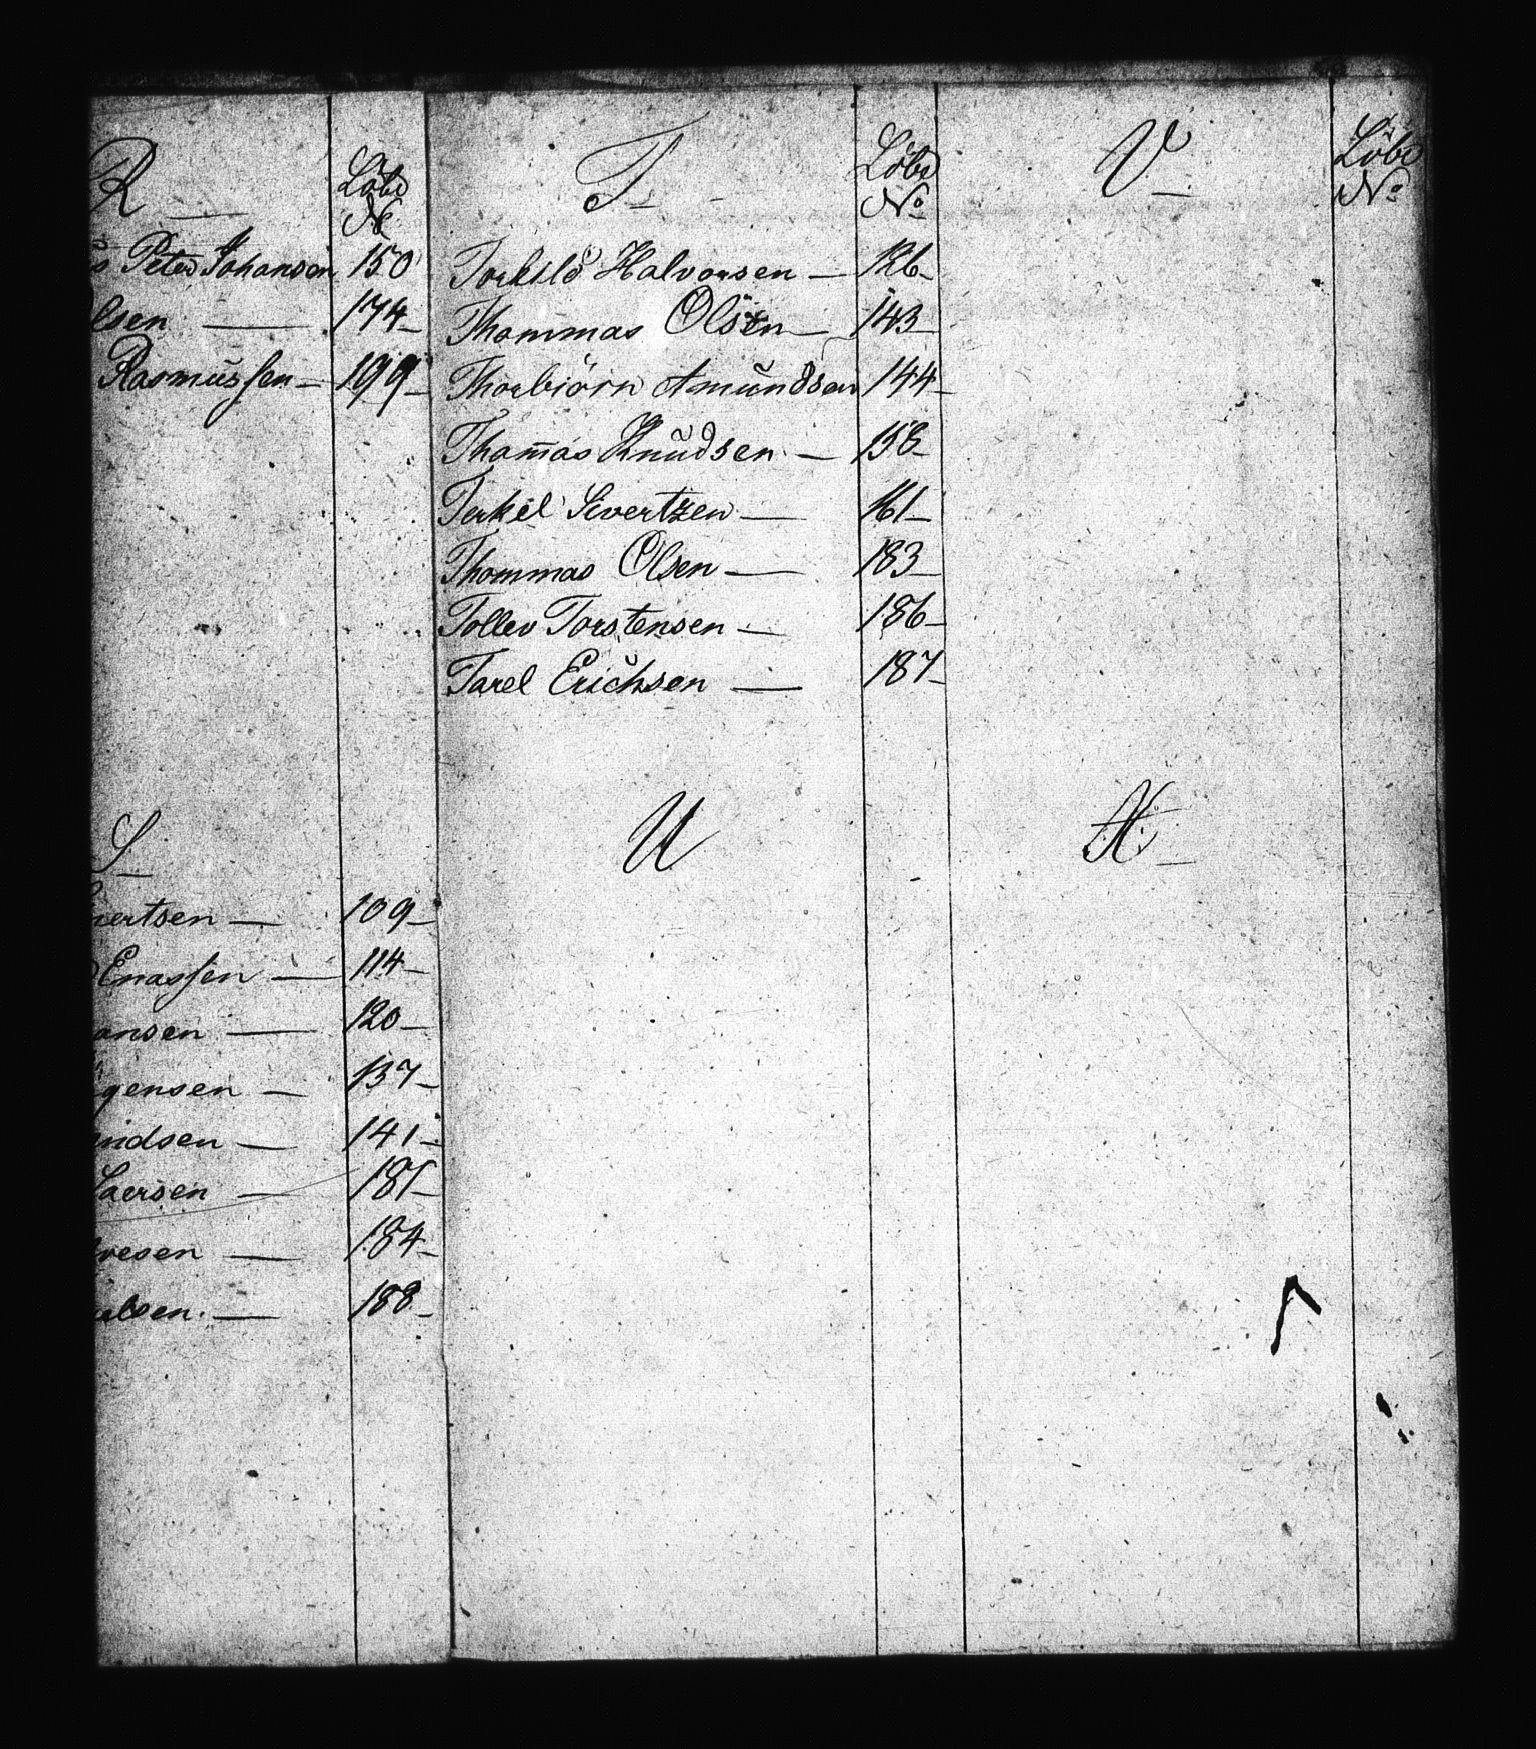 R
Löbe
No
Peter Johansen 150
lsen — 174 —
Rasmussen — 199 —
S
ertsen — 109 —
Enassen — 114 —
ansen — 120 —
gensen — 137 —
ndsen — 141 —
Saersen — 181 —
vesen — 184 —
elsen. — 188 —
T —
Löbe
No
Torkild Halvorsen — 126 —
Thommas Olsen — 143 —
Thorbiörn Amundsen 144 —
Thom̄as Knudsen — 158 —
Terkel Sivertzen — 161 —
Thommas Olsen — 183 —
Tollev Torstensen — 186 —
Tarel Erichsen — 187 —
U
V —
Löbe
No